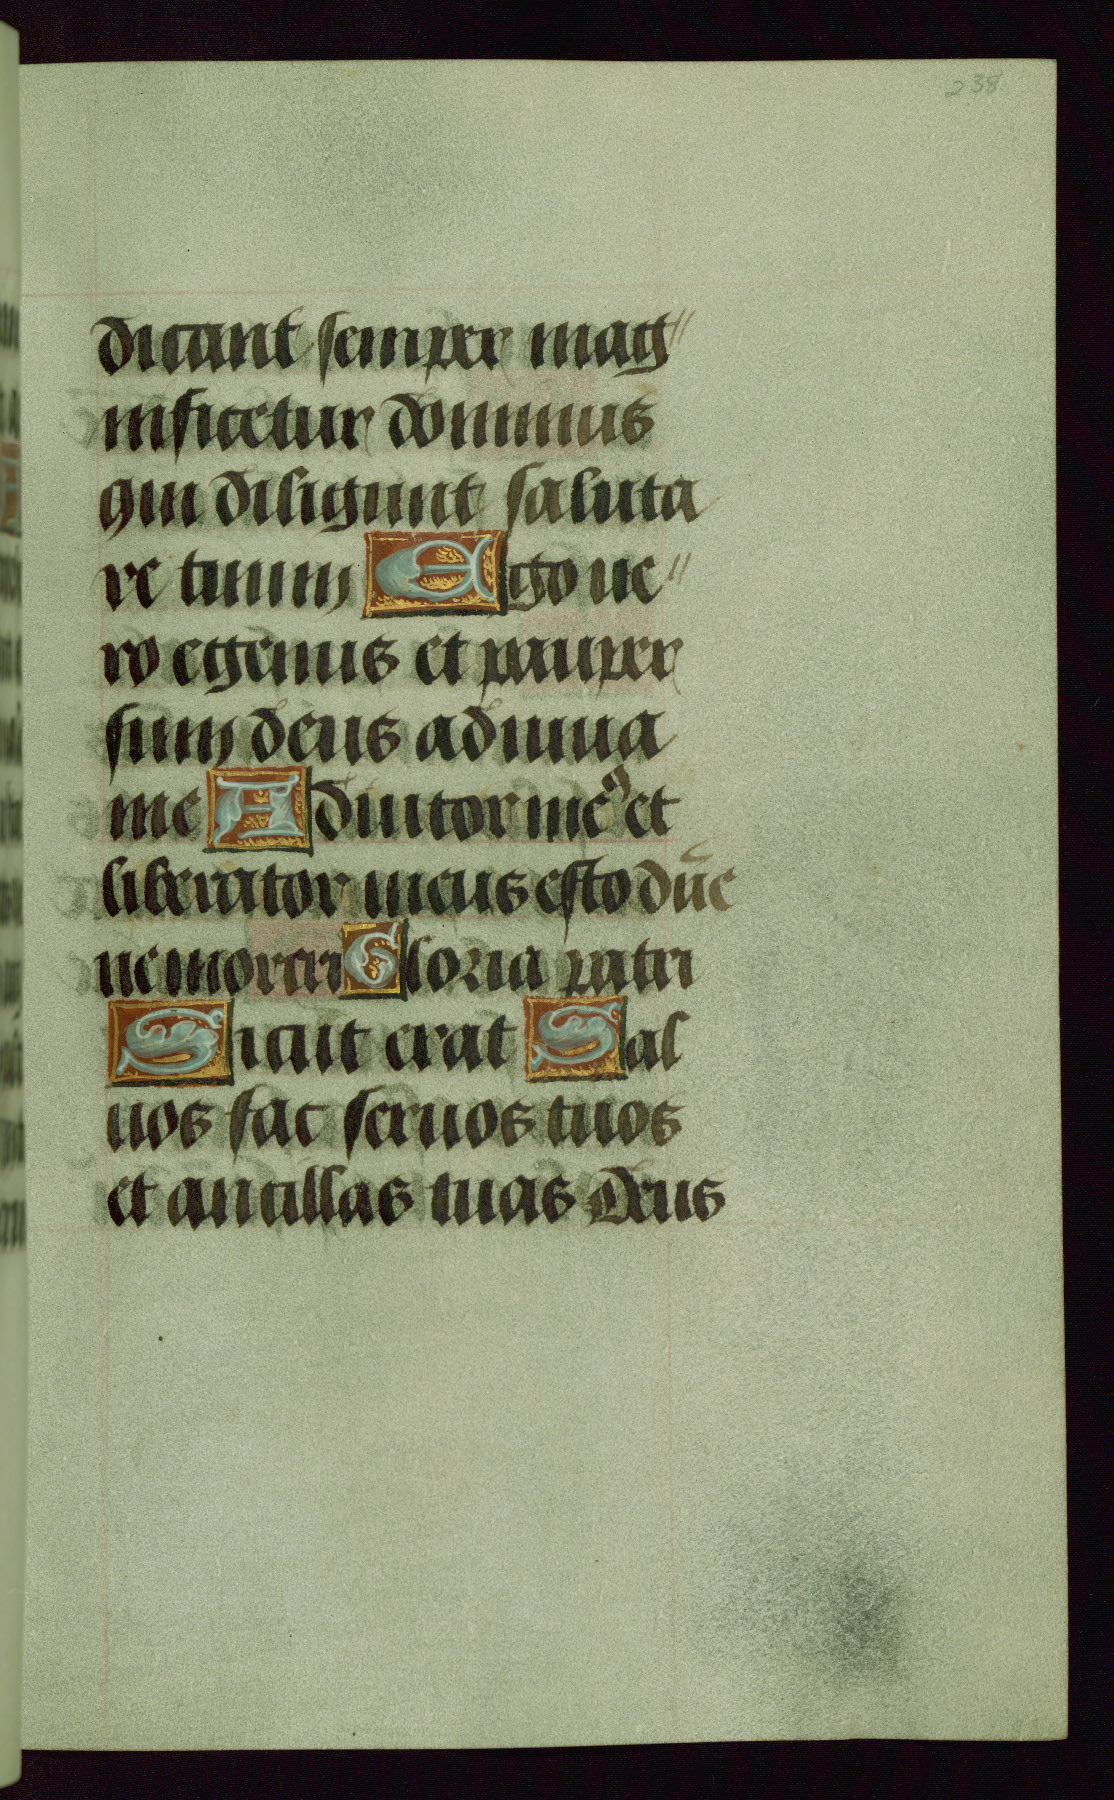 238
dicant semper mag〃
nificetur dominus
qui diligunt saluta
re tuum Ego ue〃
ro egenus et pauper
sum deus adiuua
me Adiutor meꝰ et
liberator meus esto dn̄e
ne moreris Gloria patri
Sicut erat Sal
uos fac seruos tuos
et ancillas tuas Deus